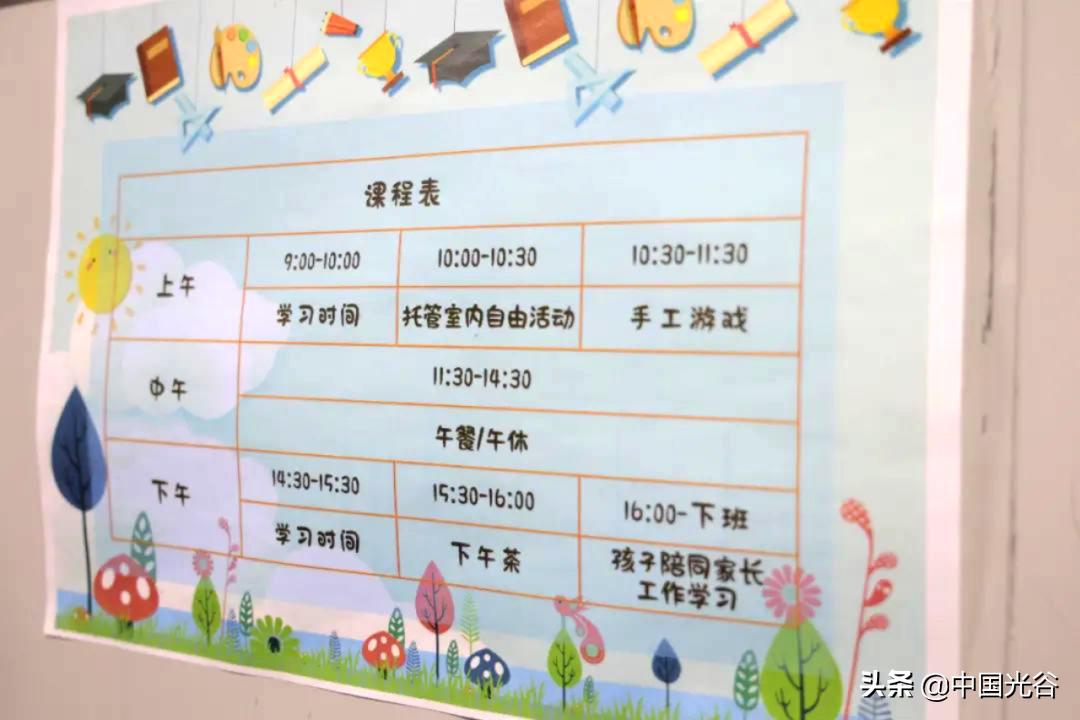 课程表
上午
9:00-10:00
10:00-10:30
10:30-11:30
学习时间
托管室内自由活动
手工游戏
中午
11:30-14:30
午餐/午休
下午
14:30-15:30
15:30-16:00
16:00-下班
学习时间
下午茶
孩子陪同家长
工作学习
头条 @中国光谷